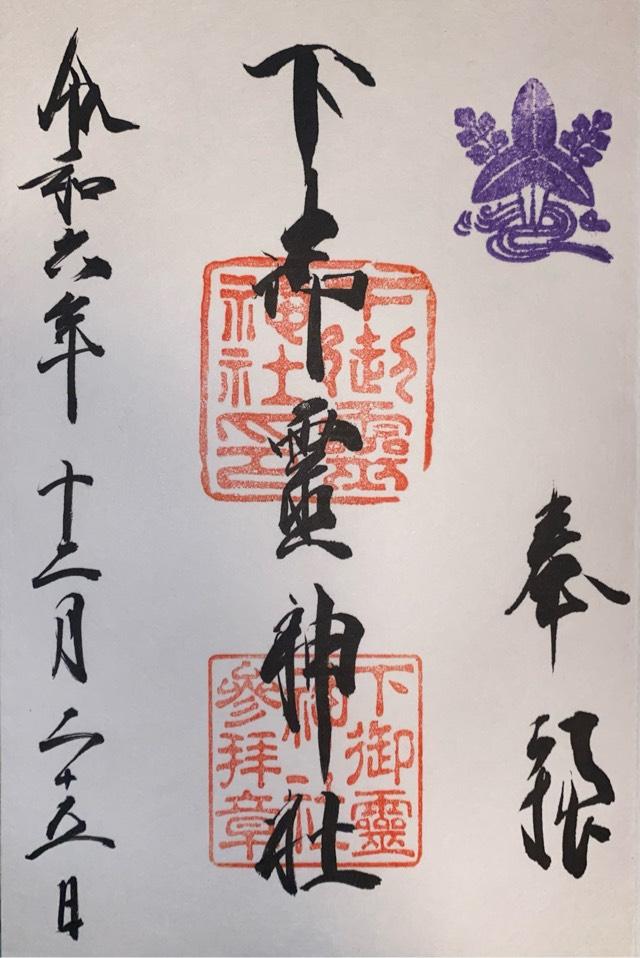 奉拝
下御靈神社
下御靈神社印
下御靈神社参拜章
令和六年十二月二十五日